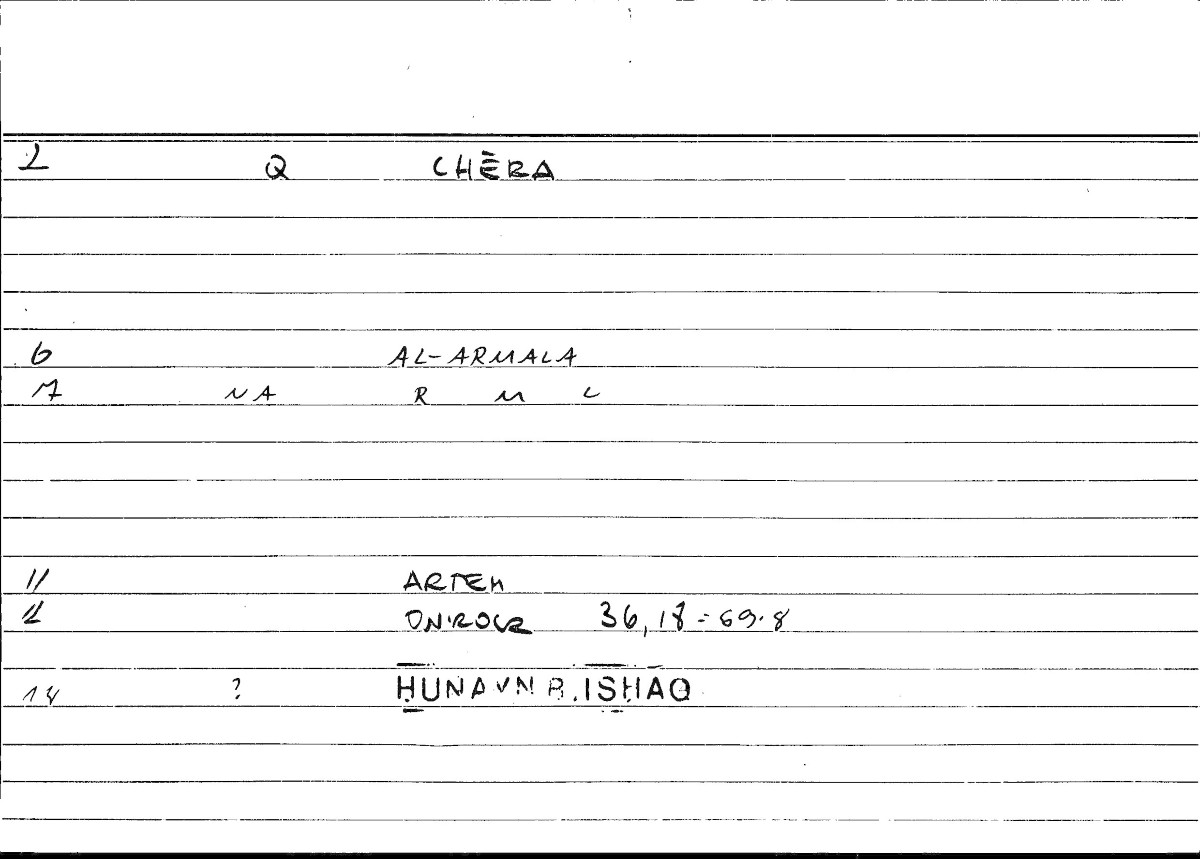 2 Q CHĒRA
6 AL-ARMALA
7 NA R M L
11 ARTEM
12 ONIROCR 36,18-69.8
14 ? ḤUNAYN B. ISḤAQ